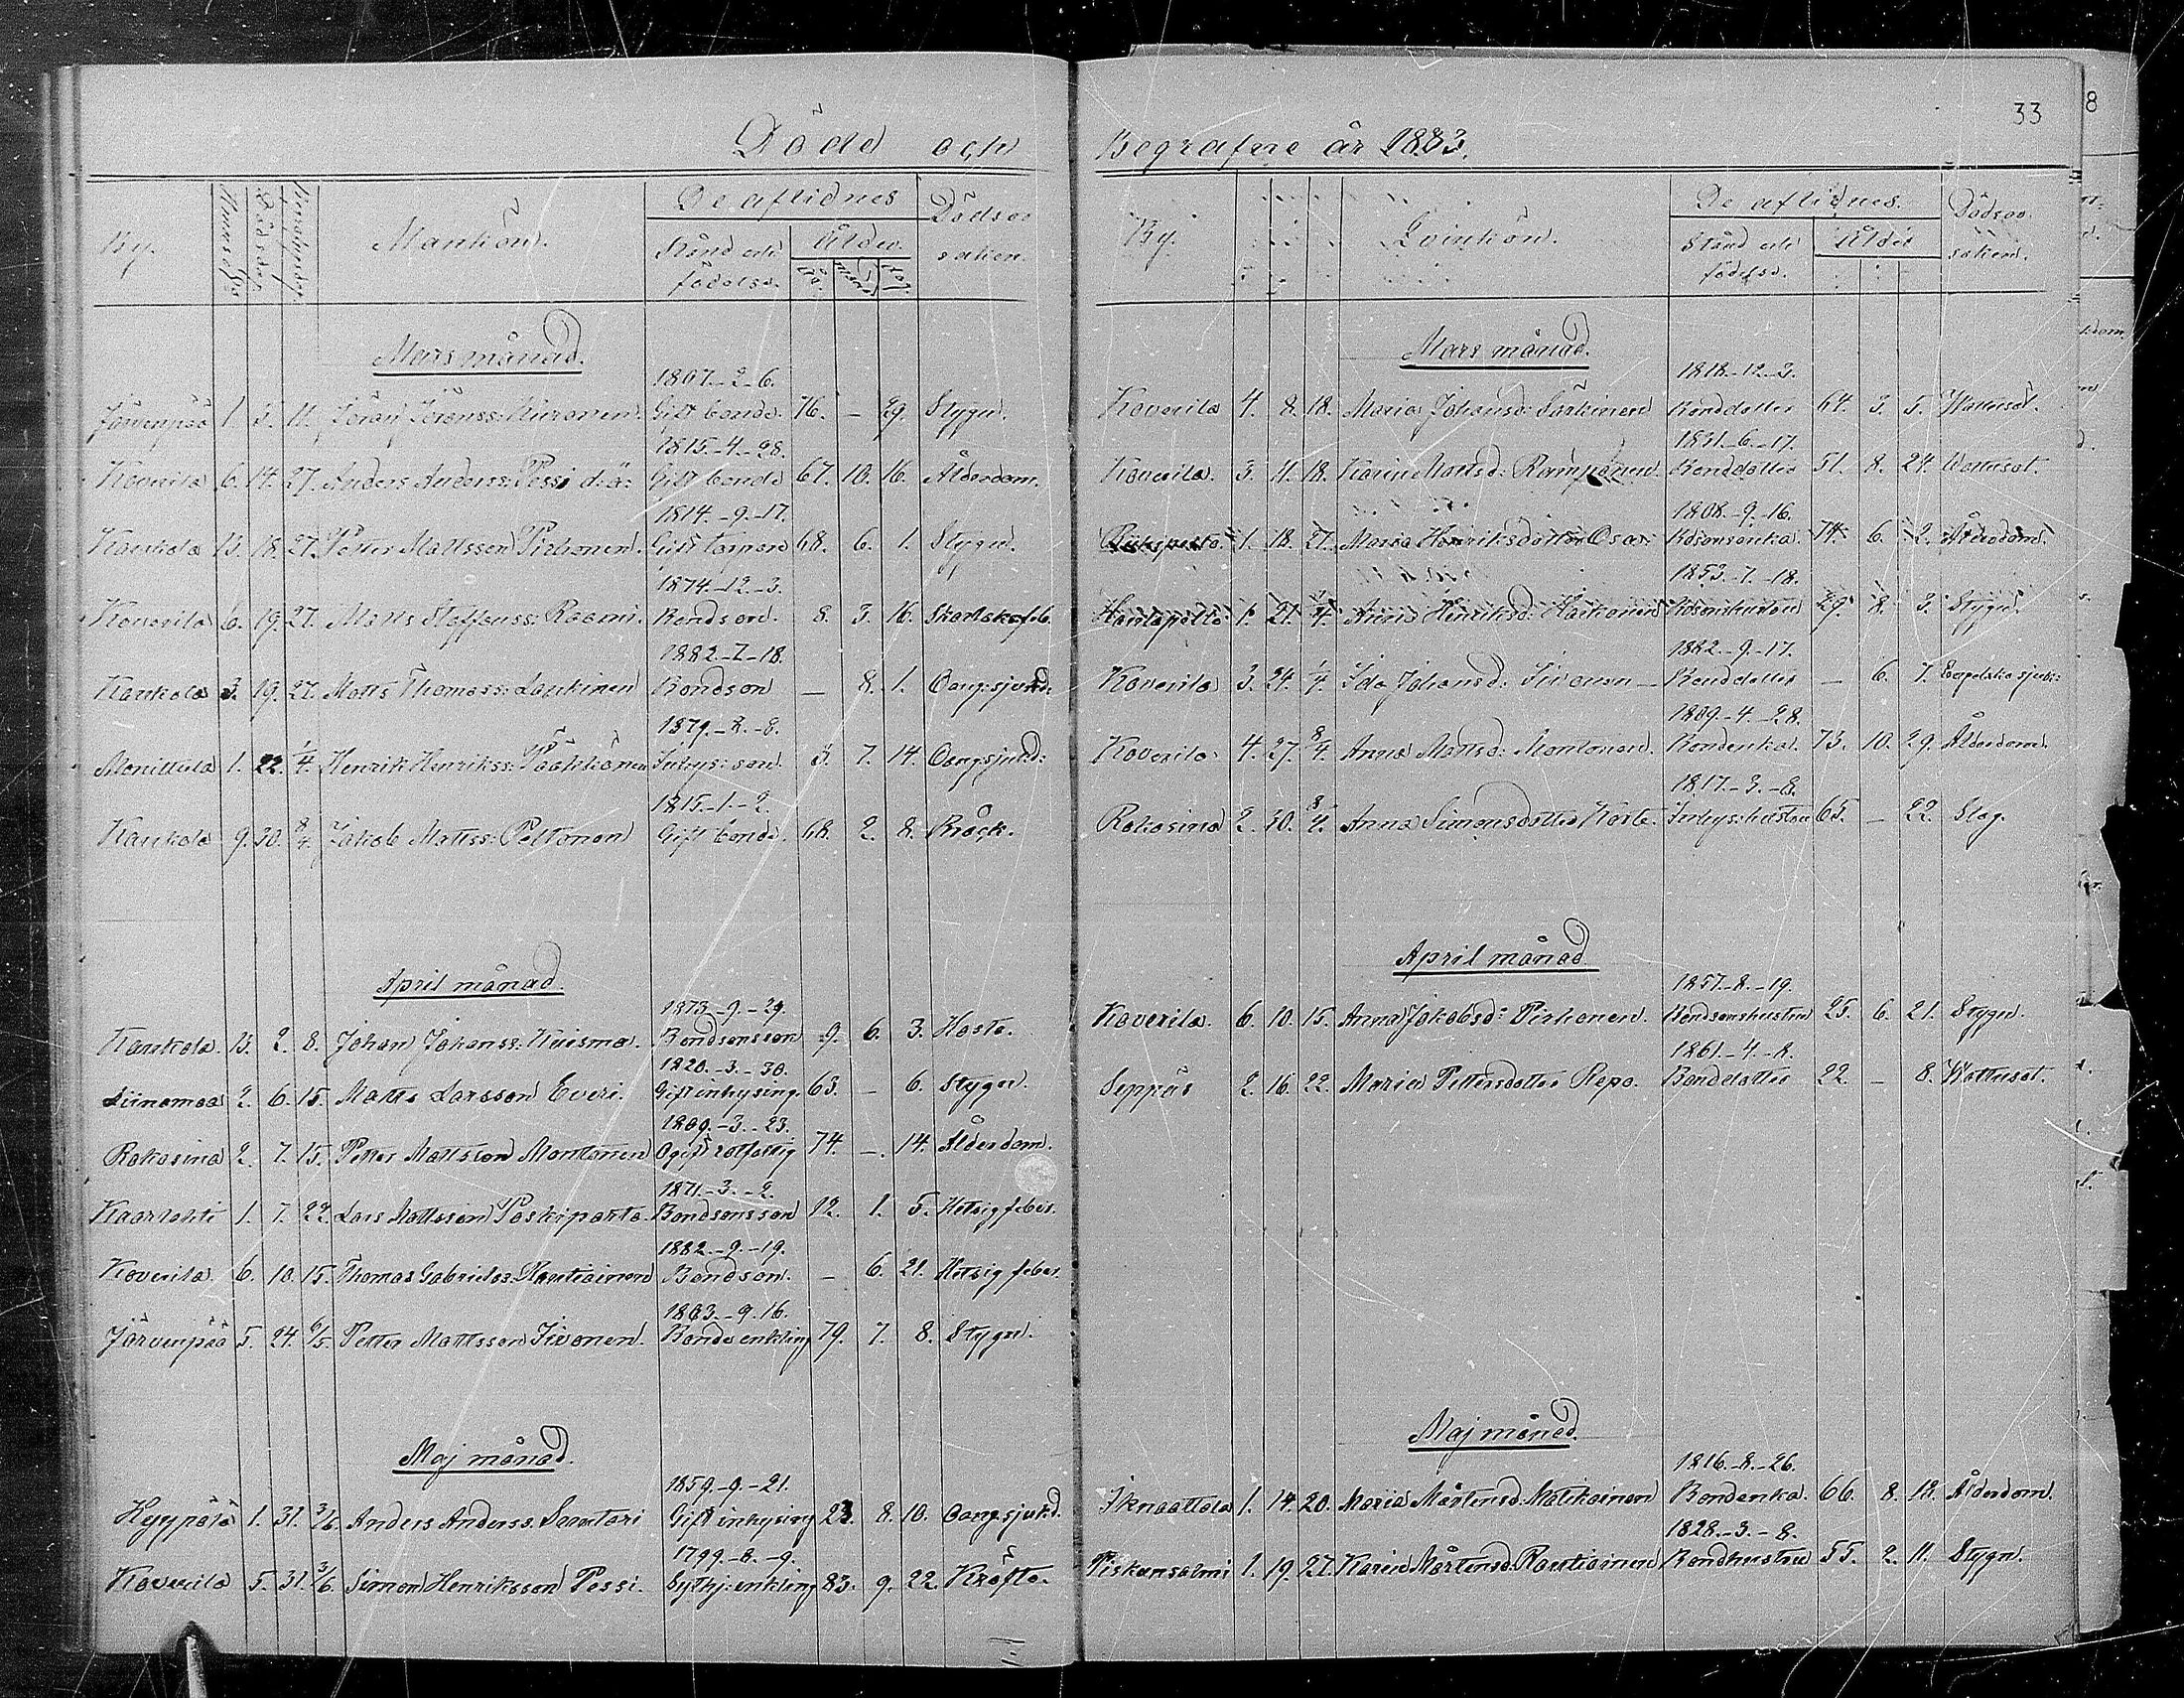 33
8
Döde och
Begrafne år 1883.
De aflidnes
Dödsor
saken.
By.
Mankön.
Stånd och
födelse.
Ålder.
Mars månad.
1807.-2-6.
Järvenpää 1. 3. 11. Göran Göranss: Gift bonde. 76. – 29. Stygn.
1815.-4-28.
Koverila 6. 14. 27. Anders Anderss: Pessi d.ä: Gift bonde 67. 10. 16. Ålderdom.
1814.-9.-17.
Kaukola 13. 18. 27. Petter Mattsson Pirhonen. Gift 68. 6. 1. Stygn.
1874.-12.-3.
Koverila 6. 19. 27. Matts Staffanss: Raami. Bondson. 8. 3. 16. Skarlaksfeb.
1882.-7-18.
Kaukola 3. 19. 27. Matts Thomass: Laukinen Bondson – 8. 1. Oang: sjukd:
1879.-8.-8.
Monittula 1. 22. 1/4. Henrik Henrikss: Pääkkönen Inhys: son 3. 7. 14. Oang. sjukd:
1815.-1.-2.
Kaukola 9. 30. 8/4. Jakob Mattss: Peltonen Gift bonde. 68. 2. 8. Bråck.
April månad.
1873.-9.-29.
Kaukola. 13. 2. 8. Johan Johanss: Kuisma. Bondsonsson 9. 6. 3. Hosta.
1820.-3.-30.
Liinamaa 2. 6. 15. Matts Larsson Everi. Gift inhysing. 63. – 6. Stygn.
1809.-3.-23.
Rokosina 2. 7. 15. Petter Mattsson Montonen Ogift rotfattig 74. –. 14. Ålderdom.
1871.-3.-2.
Kaarlahti 1. 7. 22. Lars Mattsson Paskiparta. Bondsonsson 12. 1. 5. Hetsig feber.
1882.-9.-19.
Koverila. 6. 10. 15. Thomas Gabrielss. Rautiainen Bondson. – 6. 21. Hetsig feber.
1803.-9.16.
Järvenpää 5. 24. 6/5. Petter Mattsson Sivonen. Bonde enkling 79. 7. 8. Stygn.
Maj månad.
1859.-9.-21.
Hyypälä 1. 31. 3/6. Anders Anderss. Gift inhysing 23. 8. 10. Oang. sjukd.
1799.-8.-9.
Koverila 5. 31. 3/6. Simon Henriksson Pessi. Sythj: enkling 83. 9. 22. Kräfta.
De aflidnes.
Dödsor.
saken.
By.
Qvinkön.
Stånd och
födelse.
Ålder
Mars månad.
1818.-12.-3.
Koverila 4. 8. 18. Maria Johansd: Särkinen Bonddotter 64. 3. 5. Wattusot.
1831.-6.-17.
Koverila. 3. 11. 18. Karin Mattsd: Ramponen. Bonddotter 51. 8. 24. Wattusot.
1808.-9.-16.
1. 18. 27. Maria Henriksdotter 74. 6. 2. Ålderdom.
1853.-7.-18.
1. 21. 1/4. Anna Henriksd: 29. 8. 3. Stygn.
1882.-9.-17.
Koverila 3. 24. 1/4. Ida Johansd: Sivonen Bonddotter – 6. 7. Engelska sjukd:
1809.-4.-28.
Koverila 4. 27. 8/4. Anna Mattsd: Montonen. Bondenka. 73. 10. 29. Ålderdom.
1817.-3.-8.
Rokosina 2. 30. 8/4. Anna Simonsdotter Inhys: hustru 65. – 22. Slag.
April månad
1857.-8.-19.
Koverila. 6. 10. 15. Anna Jakobsd: Pirhonen. Bondsonshustru 25. 6. 21. Stygn.
1861.-4.-8.
Seppäs 2. 16. 22. Maria Pettersdotter Repo. Bonddotter 22. – 8. Wattusot.
Maj månad.
1816.-8.-26.
1. 14. 20. Maria Mårtensd. Matikainen Bondenka. 66. 8. 18. Ålderdom.
1828.-3.-8.
Piskunsalmi 1. 19. 27. Karin Mårtensd. Rautiainen Bondhustru 55. 2. 11. Stygn.